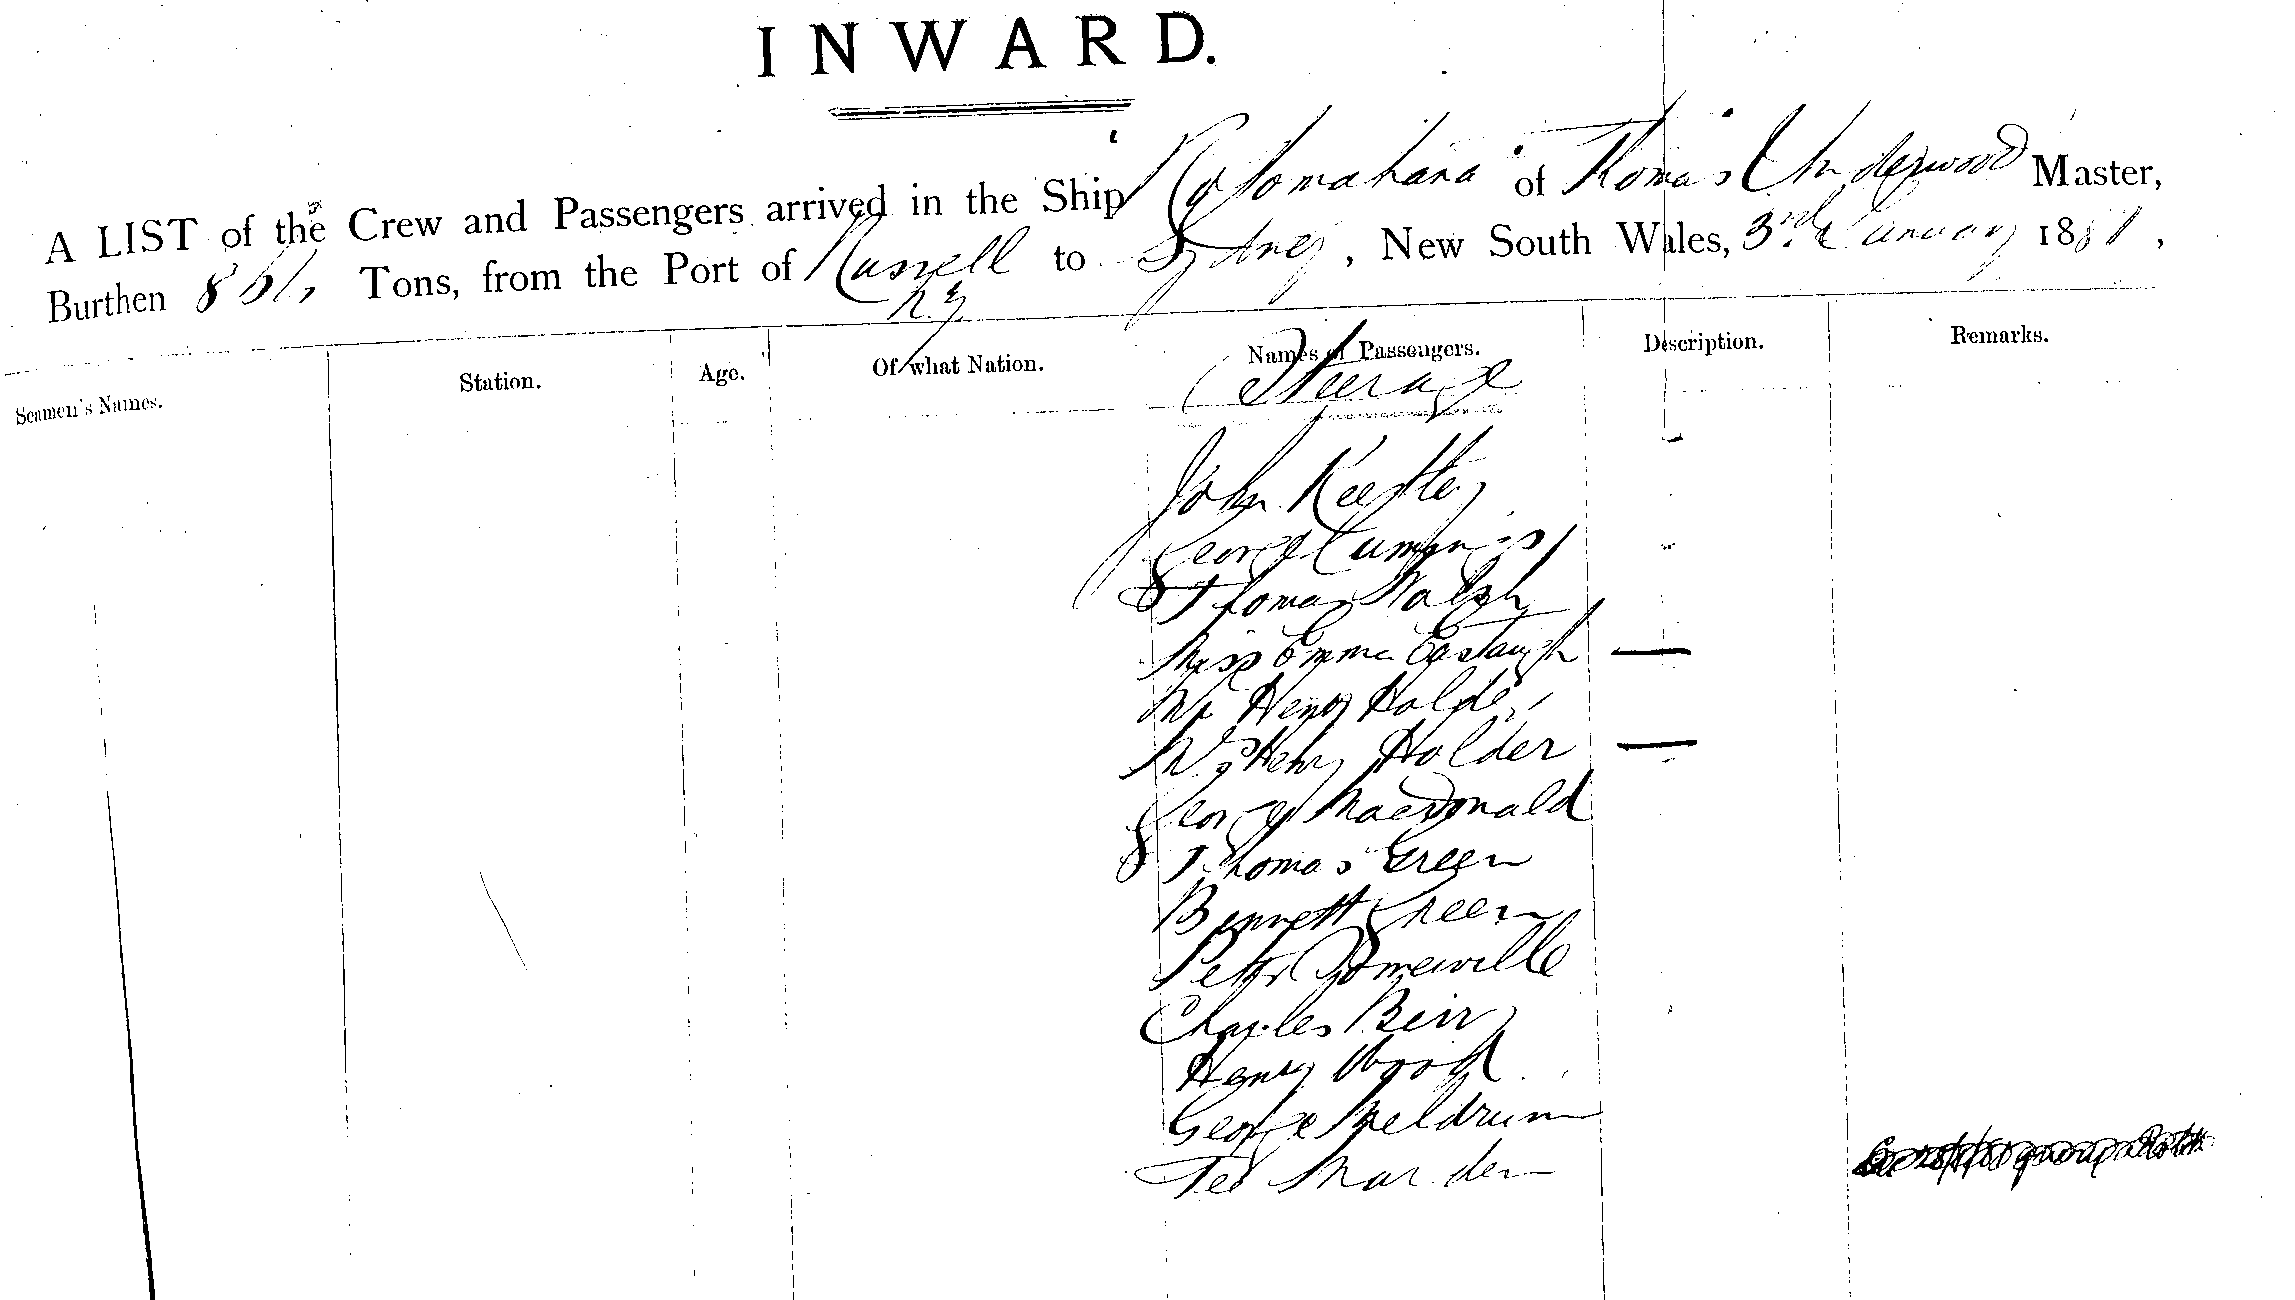 INWARD.
A LIST of the Crew and Passengers arrived in the Ship Rotomahana of Thomas Underwood Master,
Burthen 861, Tons, from the Port of Russell to Sydney, New South Wales, 3rd January 1881,
N.Z
Seamen's Names. Station. Age. Of what Nation. Names of Passengers. Description. Remarks.
Steerage
John
George Cummings
Thomas Walsh
Miss Emma Eastaugh
Mr Henry Holder
Mrs Henry Holder
George MacDonald
Thomas Green
Bennett Green
Peter Somerville
Charles
Henry Wood
George Meldrum
Ted Marsden